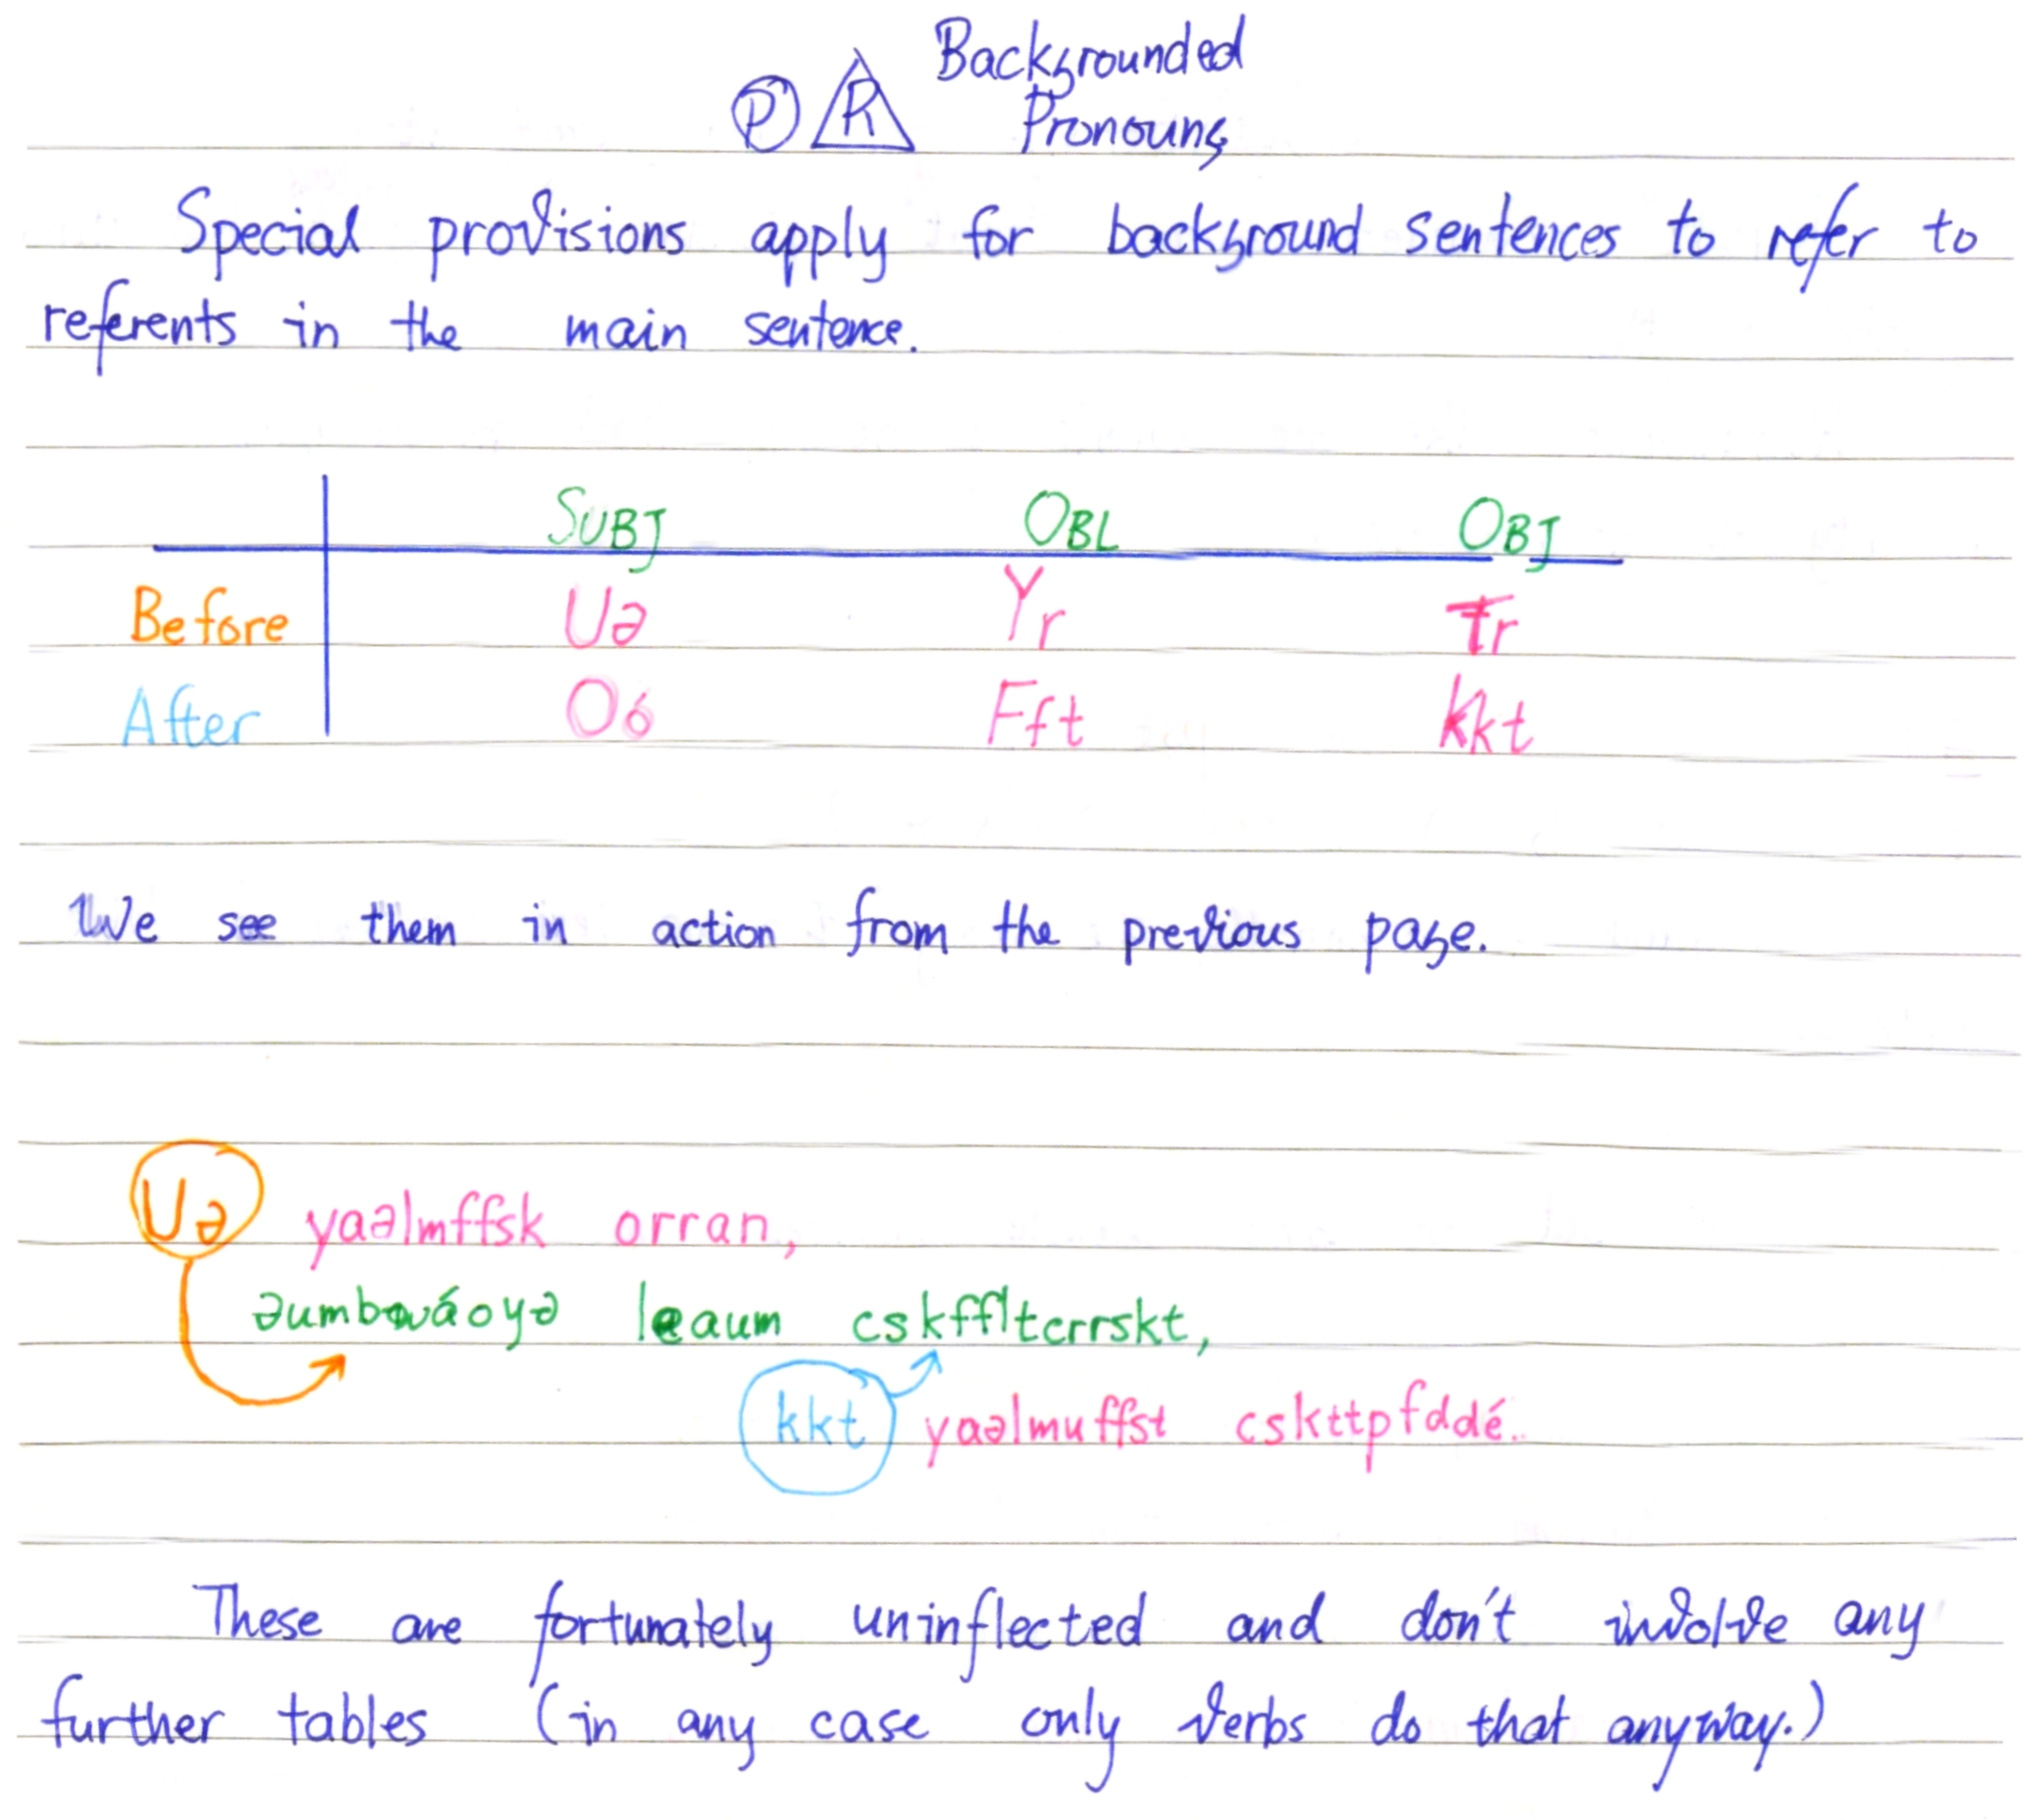 Backgrounded
P R Pronouns
Special provisions apply for background sentences to refer to
referents in the main sentence.
SUBJ OBL OBJ
Before Uə Yr Tr
After Oó Fft Kkt
We see them in action from the previous page.
Uə yaəlmffsk orran,
əumbwáoyə leaum cskffltcrrskt,
kkt yaəlmuffst cskttpfddé.
These are fortunately uninflected and don't involve any
further tables (in any case only verbs do that anyway.)